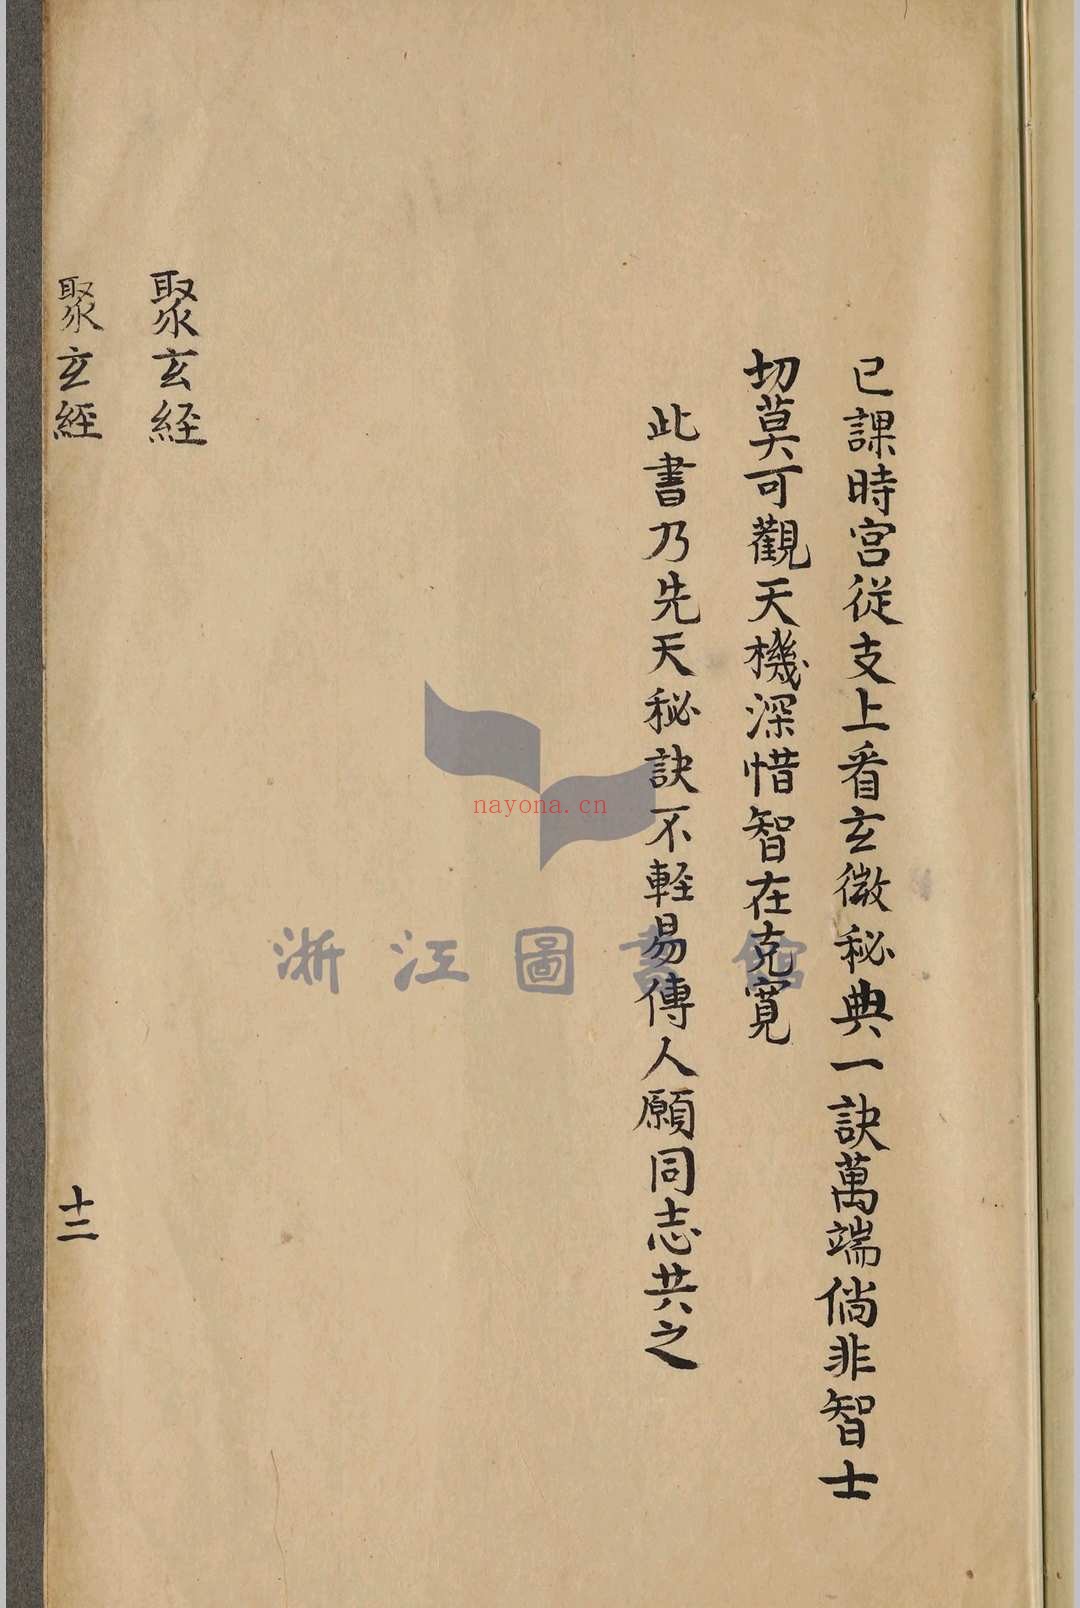 已課時宮從支上看玄微秘典一訣萬端倘非智士
切莫可觀天機深惜智在克寬
此書乃先天秘訣不軽易傳人願同志共之
聚玄経
聚玄經
十二
nayona.cn
浙江圖書館